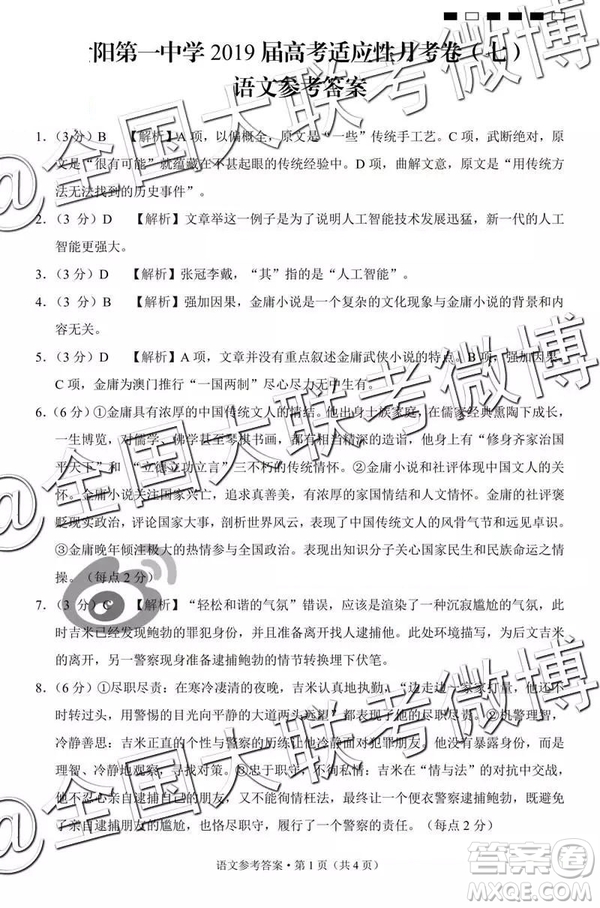 阳第一中学2019届高考适应性月考卷（七）
语文参考答案
1.（3分）B 【解析】A项，以偏概全，原文是“一些”传统手工艺。C项，武断绝对，原
文是“很有可能”就蕴藏在不甚起眼的传统经验中。D项，曲解文意，原文是“用传统方
法无法找到的历史事件”。
2.（3分）D 【解析】文章举这一例子是为了说明人工智能技术发展迅猛，新一代的人工
智能更强大。
3.（3分）D 【解析】张冠李戴，“其”指的是“人工智能”。
4.（3分）B 【解析】强加因果，金庸小说是一个复杂的文化现象与金庸小说的背景和内
容无关。
5.（3分）D 【解析】A项，文章没有重点叙述金庸武侠小说的特点。B项，
C项，金庸为澳门推行“一国两制”尽心尽力无中生有。
6.（6分）①金庸具有浓厚的中国传统文人的情结。他出身士族家庭，在儒家经典熏陶下成长，
一生博览，对儒学、佛学甚至琴棋书画，都有超越常人的精深的造诣，他身上有“修身齐家治国
平天下”和“立德立功立言”三不朽的传统情怀。②金庸小说和社评体现中国文人的忧
患意识。金庸小说关注国家兴亡，追求真善美，有浓厚的家国情结和使命感。金庸的社评褒
贬现实政治，评论国家大事，剖析世界风云，表现了中国传统文人的风骨气节和远见卓识。
③金庸晚年倾注极大的热情参与全国政治。表现出知识分子关心国家民生和民族命运的情
操。（每点2分）
7.（3分）C 【解析】“轻松和谐的气氛”错误，应该是渲染了一种沉寂尴尬的气氛，此
时吉米已经发现鲍勃的罪犯身份，并需要以警察的身份逮捕他。此处环境描写为后文吉米
的离开，另一警察现身准备逮捕鲍勃的情节转换埋下伏笔。
8.（6分）①尽职尽责：在寒冷凄清的夜晚，吉米认真地执勤，“边走边一家家打量，他还
不时转过头，用警惕的目光向平静的大道两头巡视”表现了他的尽职尽责。②机警理智，
冷静善思：吉米正直冷静，在判断对方可能是罪犯时，他没有暴露身份，而是
理智、冷静地观察、思考、处理。③忠于职守，不徇私情：吉米在“情与法”的对抗中交战，
他不忍心亲自逮捕自己的朋友，又不想徇情枉法，最终让一个便衣警察逮捕鲍勃，既免去了
亲自逮捕朋友的尴尬，又尽忠职守，履行了一个警察的责任。（每点2分）
语文参考答案·第1页（共4页）
@全国大联考微博
@全国大联考微博
@全国大联考微博
答案卷